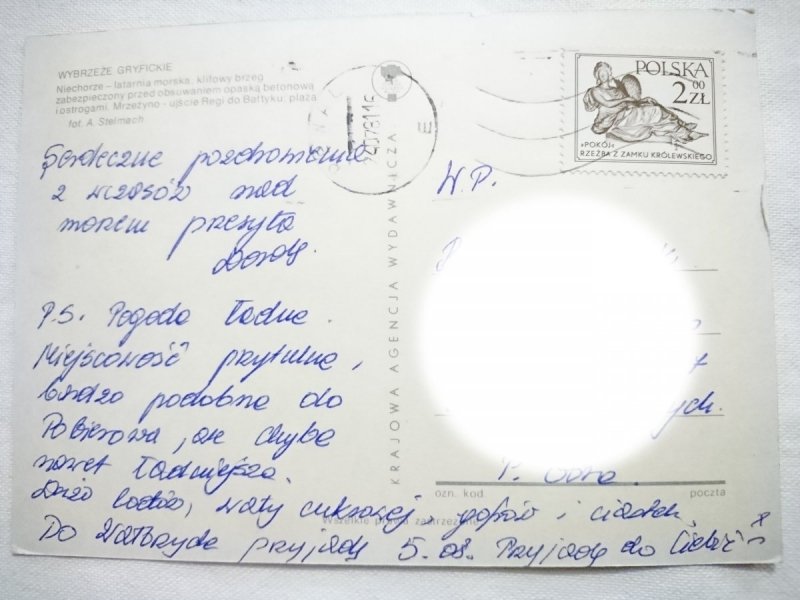 WYBRZEŻE GRYFICKIE
Niechorze – latarnia morska; klifowy brzeg
zabezpieczony przed obsuwaniem opaską betonową
i ostrogami. Mrzeżyno - ujście Regi do Bałtyku; plaża
fot. A. Stelmach
Serdeczne pozdrowienia
z wczasów nad
morzem przesyła
P.S. Pogoda ładna.
Miejscowość przytulna,
bardzo podobna do
Pobierowa, ale chyba
nawet ładniejsza.
Dużo lodów, waty cukrowej, gofrów i ciastek.
Do Wałbrzycha przyjadę 5.08. Przyjadę do Ciebie
KRAJOWA AGENCJA WYDAWNICZA
POLSKA
2 00 ZŁ
»POKÓJ«
RZEŹBA Z ZAMKU KRÓLEWSKIEGO
W.P.
ozn. kod
poczta
Wszelkie prawa zastrzeżone